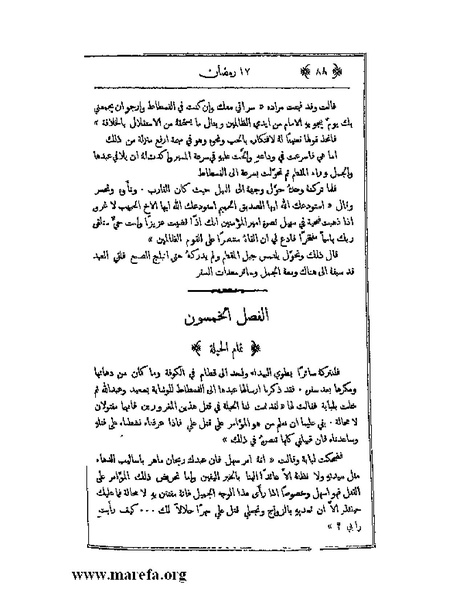 ﴿ ٨٨ ﴾
١٧ رمضان
قالت وقد فهمت مراده « سر اني معك وان كنت في الفسطاط وارجو ان يجمعني
بك يوم ينجو به الامام من ايدي الظالمين وينال ما يستحقه من الاستقلال بالخلافة »
فاتخذ قولها تعنيفًا له لافتكاره بالحب ونحوه وهو في مهمة ارفع منزلة من ذلك
اما هي فاسرعت في وداعه والحّت عليه في سرعة المسير واكدت له ان يلاقي عبدها
والجمل وراء المقطم ثم تحوّلت بسرعة الى الفسطاط
فلما تركته وحده حوّل وجهه الى النيل حيث كان القارب وتأوّه وتحسر
وقال « استودعك الله ايها الصديق الحميم استودعك الله ايها الاخ الحبيب لا غرو
اذا ذهبت ضحية في سبيل نصرة امير المؤمنين انك اذا قضيت عزيزًا وانت حيّ ستلقى
ربك باسمًا مفتخرًا فادع لي ان القاه منتصرًا على القوم الظالمين »
قال ذلك وتحوّل يلتمس جبل المقطم ولم يدركه حتى انبلج الصبح فلقي العبد
قد سبقه الى هناك ومعه الجمل وسائر معدات السفر
الفصل الخمسون
﴿ تمام الحيلة ﴾
فلنتركه سائرًا يطوي البيداء ولنعد الى قطام في الكوفة وما كان من دهائها
ومكرها بعد سفره . فقد ذكرنا ارسالها عبدها الى الفسطاط للوشاية بسعيد وعبدالله ثم
خلت بلبابة فقالت لها « لقد تمت لنا الحيلة في قتل هذين المغرورين فانهما مقتولان
لا محالة . بقي علينا ان نعلم من هو المؤامر على قتل علي فاذا عرفناه نشطناه على قتله
وساعدناه فان قبيلتي كلها تنصره في ذلك »
فضحكت لبابة وقالت « انه امر سهل فان عبدك ريحان ماهر باساليب الدهاء
مثل سيدته ولا نظنه الا عائدًا الينا بالخبر اليقين واما تحريض ذلك المؤامر على
القتل فهو اسهل وخصوصًا اذا رأى هذا الوجه الجميل فانه مفتتن به لا محالة فما عليك
حينئذٍ الا ان تعديه بالزواج وتجعلي قتل علي مهرًا حلالًا لك ... كيف رأيت
رأيي ؟ »
www.marefa.org